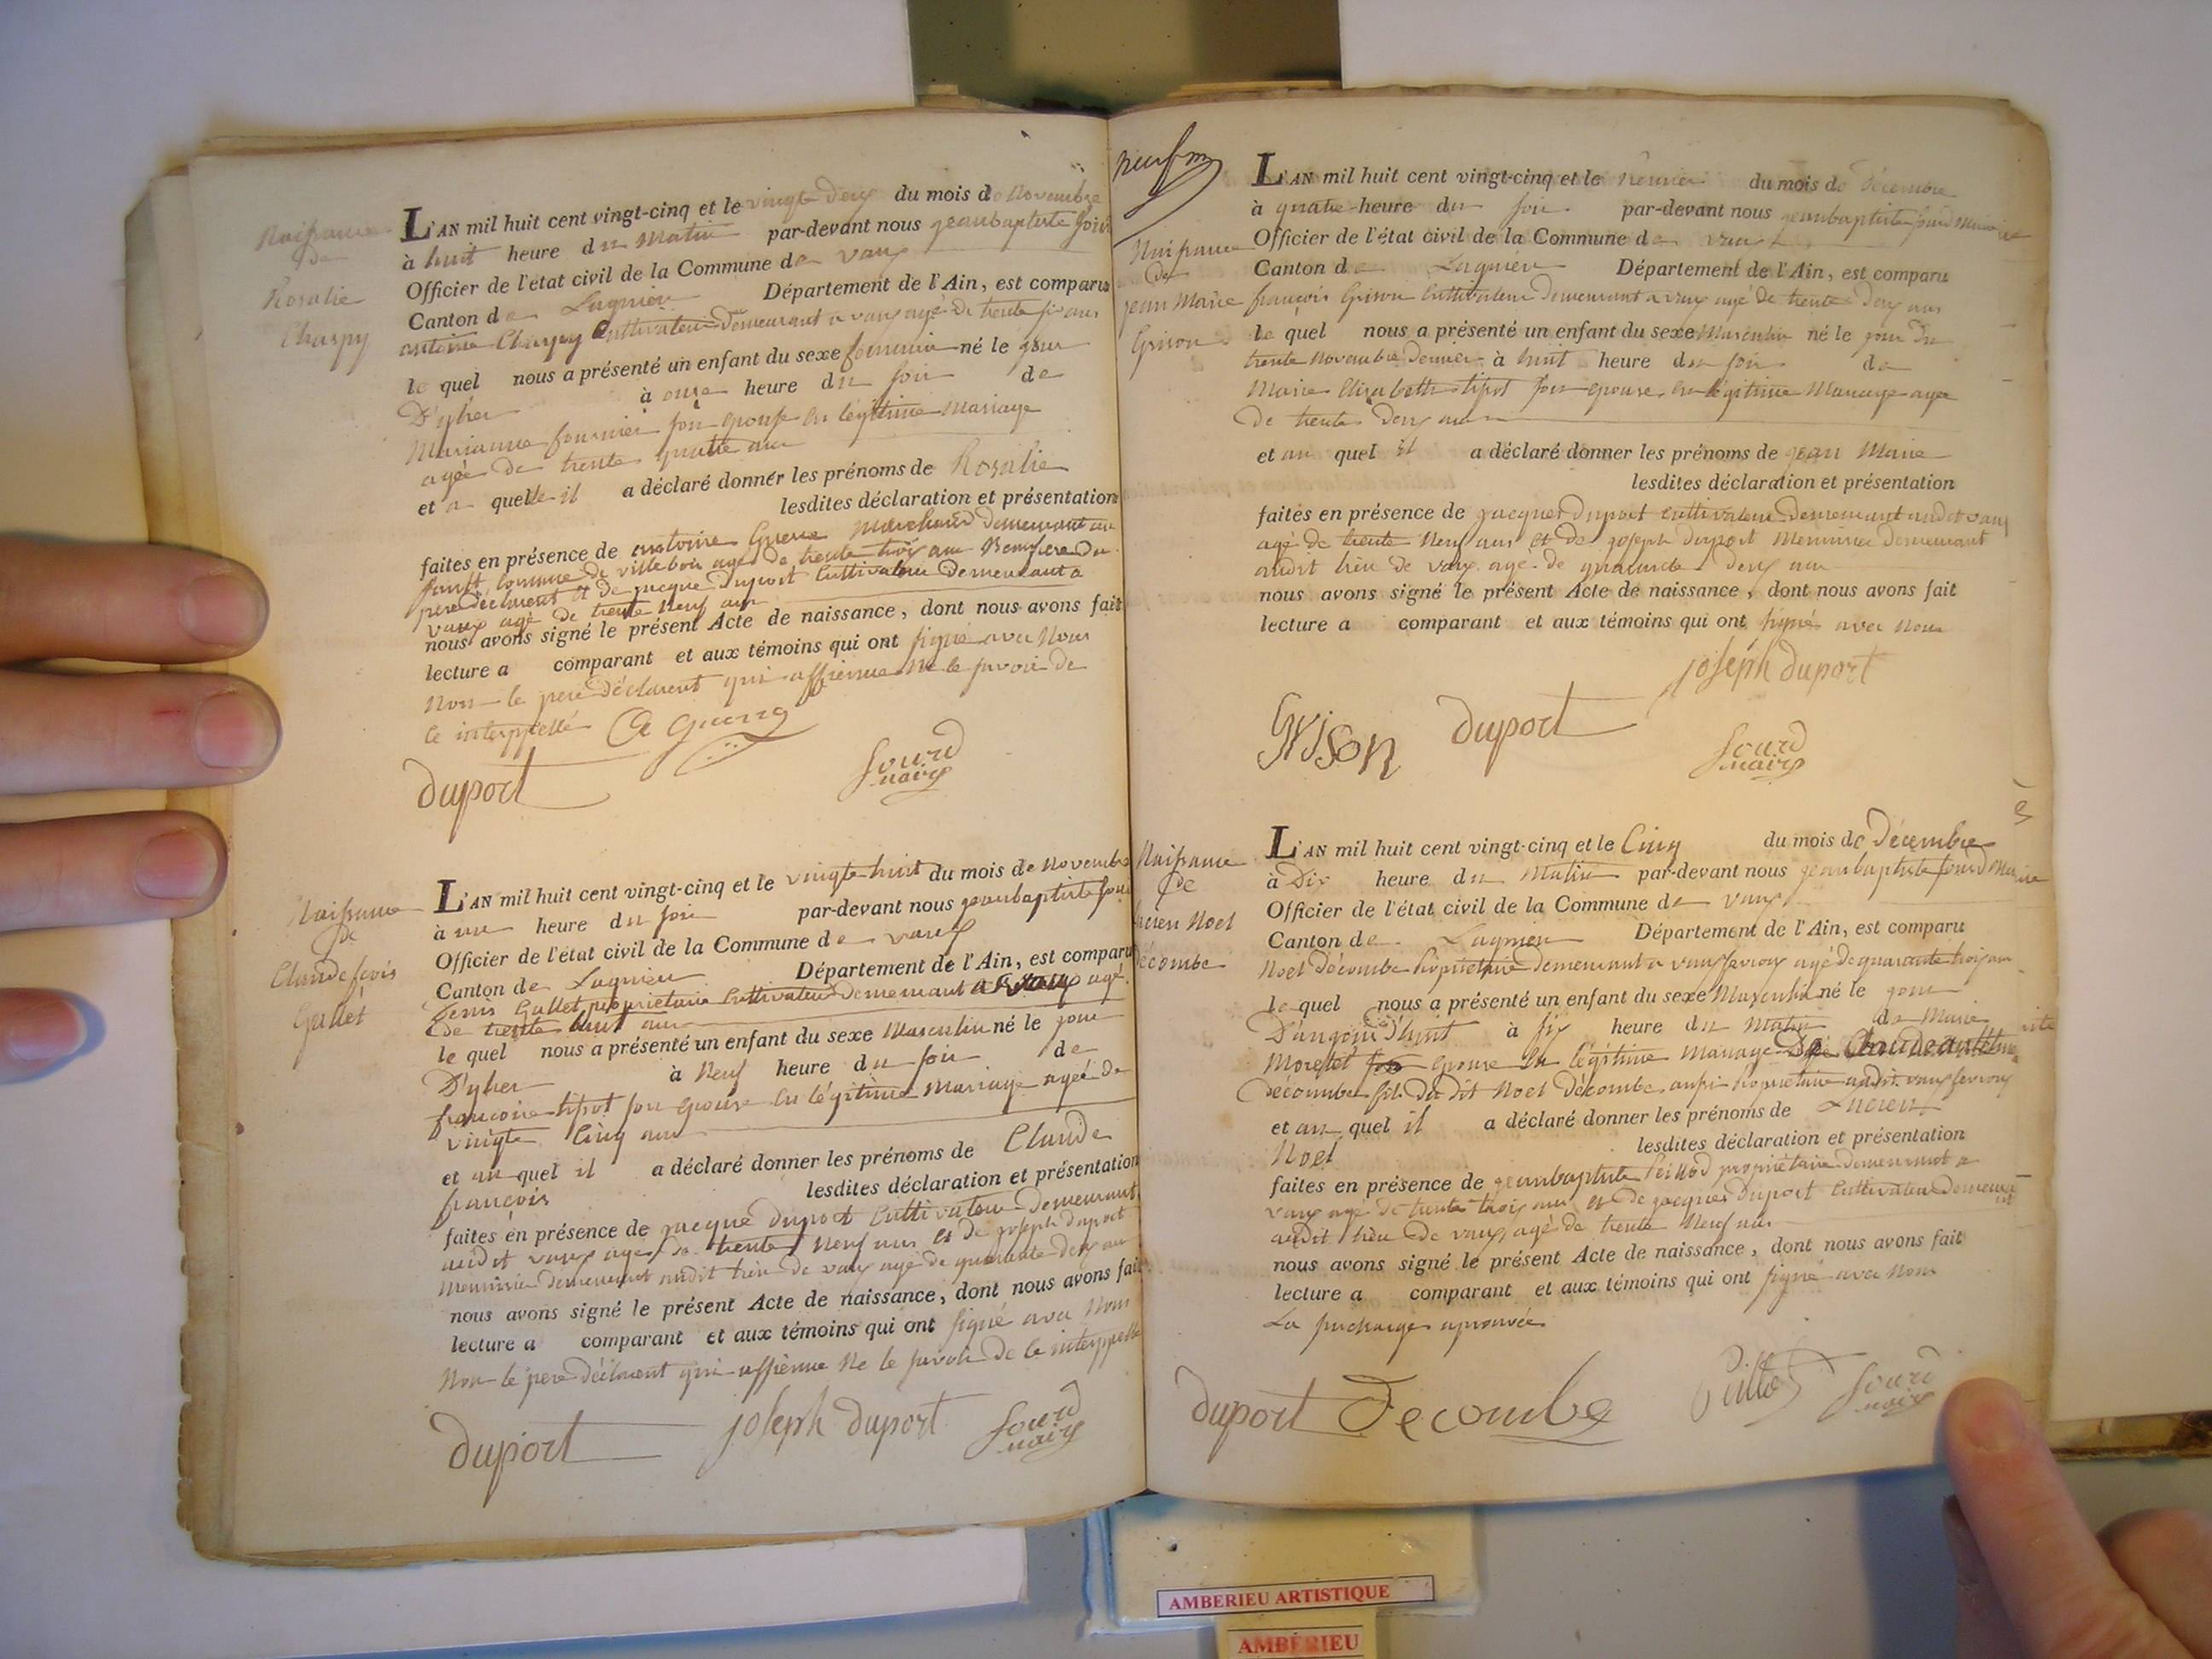 Naissance
de
Rosalie
Charpy
L'AN mil huit cent vingt-cinq et le vingt deux du mois de Novembre
à huit heure du Matin par-devant nous jeanbaptiste
Officier de l'état civil de la Commune de vaux
Canton de Lagnieu Département de l'Ain, est comparu
antoine Charpy Cultivateur demeurant a vaux agé de trente six ans
le quel nous a présenté un enfant du sexe feminin né le jour
D'yher à onze heure du soir de
Marianne fournier son epouse en légitime Mariage
agée de trente quatre ans
et a quelle il a déclaré donner les prénoms de Rosalie
lesdites déclaration et présentation
faites en présence de antoine Marchand demeurant au
Commune de villebois agé de trente trois ans Beaufrere du
pere déclarent et de jacque Duport Cultivateur Demeurant a
vaux agé de trente neuf ans
nous avons signé le présent Acte de naissance, dont nous avons fait
lecture a comparant et aux témoins qui ont signé avec Nous
Non le pere déclarent qui affirme Ne le savoir de
ce interppellé
duport
Sourd
maire
Naissance
de
Claude
Gullet
L'AN mil huit cent vingt-cinq et le vingte huit du mois de Novembre
à une heure du soir par-devant nous jeanbaptiste
Officier de l'état civil de la Commune de vaux
Canton de Lagnieu Département de l'Ain, est comparu
Denis Gullet propriétaire Cultivateur Demeurant a vaux agé
de trente huit ans
le quel nous a présenté un enfant du sexe Masculin né le jour
D'yher à Neuf heure du soir de
francoise tipot son epouse en légitime Mariage ageé de
vingte Cinq ans
et au quel il a déclaré donner les prénoms de Claude
françois lesdites déclaration et présentation
faites en présence de jacque Duport Cultivateur Demeurant
audit vaux agé de trente Neuf ans et de joseph duport
Menuisier demeurant audit lieu de vaux agé de quarante deux ans
nous avons signé le présent Acte de naissance, dont nous avons fait
lecture a comparant et aux témoins qui ont signé avec Nous
Non le pere déclarent qui affirme Ne le savoir de ce interppellé
duport joseph duport Sourd
maire
Naissance
de
jean Marie
Grison
L'AN mil huit cent vingt-cinq et le premier du mois de Décembre
à quatre heure du soir par-devant nous jeanbaptiste Sourd Maire
Officier de l'état civil de la Commune de vaux
Canton de Lagnieu Département de l'Ain, est comparu
françois Grison Cultivateur Demeurant a vaux agé de trente deux ans
le quel nous a présenté un enfant du sexe Masculin né le jour du
trente Novembre dernier à huit heure du soir de
Marie Elizabeth tipot son epouse en légitime Mariage agée
de trente deux ans
et au quel il a déclaré donner les prénoms de jean Marie
lesdites déclaration et présentation
faites en présence de jacques Duport Cultivateur Demeurant audit vaux
agé de trente Neuf ans et de joseph Duport Menuisier Demeurant
audit lieu de vaux agé de quarante deux ans
nous avons signé le présent Acte de naissance, dont nous avons fait
lecture a comparant et aux témoins qui ont signés avec Nous
joseph duport
Grison duport Sourd
maire
Naissance
de
Lucien Noel
décombe
L'AN mil huit cent vingt-cinq et le Cinq du mois de Décembre
à Dix heure du Matin par-devant nous jeanbaptiste Sourd Maire
Officier de l'état civil de la Commune de vaux
Canton de Lagnieu Département de l'Ain, est comparu
Noel Décombe Propriétaire demeurant a vaux fevroux agé de quarante trois ans
le quel nous a présenté un enfant du sexe Masculin né le jour
D'aujourd'huit à six heure du Matin de Marie
Morestel epouse en légitime Mariage De Claude anthelme
Décombe fils du dit Noel Décombe aussi Propriétaire audit vaux fevroux
et au quel il a déclaré donner les prénoms de Lucien
Noel lesdites déclaration et présentation
faites en présence de jeanbaptiste propriétaire demeurant a
vaux agé de trente trois ans et de jacques Duport Cultivateur demeurant
audit lieu de vaux agé de trente Neuf ans
nous avons signé le présent Acte de naissance, dont nous avons fait
lecture a comparant et aux témoins qui ont signé avec Nous
La surcharge aprouvée
duport Decombe Sourd
maire
AMBERIEU ARTISTIQUE
AMBÉRIEU